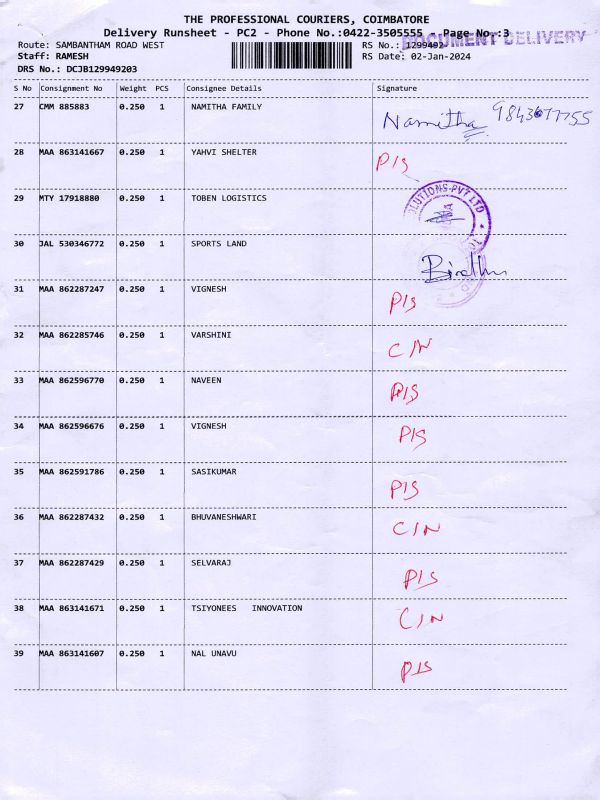 THE PROFESSIONAL COURIERS, COIMBATORE
Delivery Runsheet - PC2 - Phone No.:0422-3505555 Page No.:3
DOCUMENT DELIVERY
Route: SAMBANTHAM ROAD WEST RS No.: 1299492
Staff: RAMESH RS Date: 02-Jan-2024
DRS No.: DCJB129949203
S No Consignment No Weight PCS Consignee Details Signature
27 CMM 885883 0.250 1 NAMITHA FAMILY Namitha
28 MAA 863141667 0.250 1 YAHVI SHELTER P/S
29 MTY 17918880 0.250 1 TOBEN LOGISTICS
OLUTIONS PVT LTD
30 JAL 530346772 0.250 1 SPORTS LAND
31 MAA 862287247 0.250 1 VIGNESH P/S
32 MAA 862285746 0.250 1 VARSHINI C/N
33 MAA 862596770 0.250 1 NAVEEN P/S
34 MAA 862596676 0.250 1 VIGNESH P/S
35 MAA 862591786 0.250 1 SASIKUMAR P/S
36 MAA 862287432 0.250 1 BHUVANESHWARI C/N
37 MAA 862287429 0.250 1 SELVARAJ P/S
38 MAA 863141671 0.250 1 TSIYONEES INNOVATION C/N
39 MAA 863141607 0.250 1 NAL UNAVU P/S